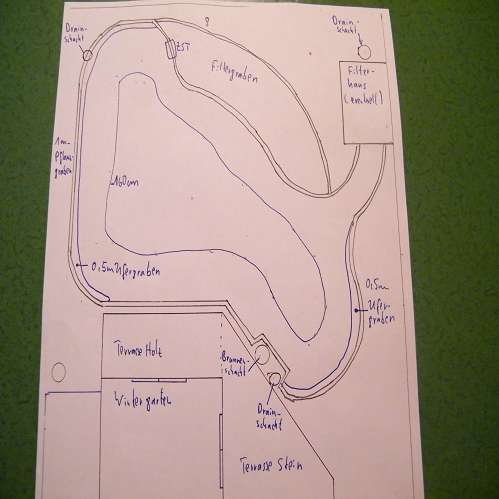 8
Drain-
schacht
Drain-
schacht
ZST
Filtergraben
Filter-
haus
(eventuell)
1m
Pflanz-
graben
160cm
0,5m Ufergraben
0,5m
Ufer-
graben
Terrasse Holz
Brunnen-
schacht
Wintergarten
Drain-
schacht
Terrasse Stein